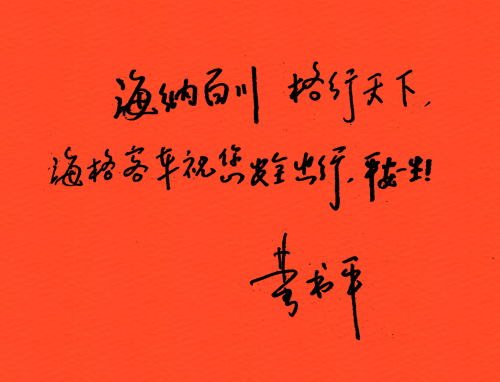 海纳百川 格行天下，
海格客车祝您安全出行，平安一生！
黄书平